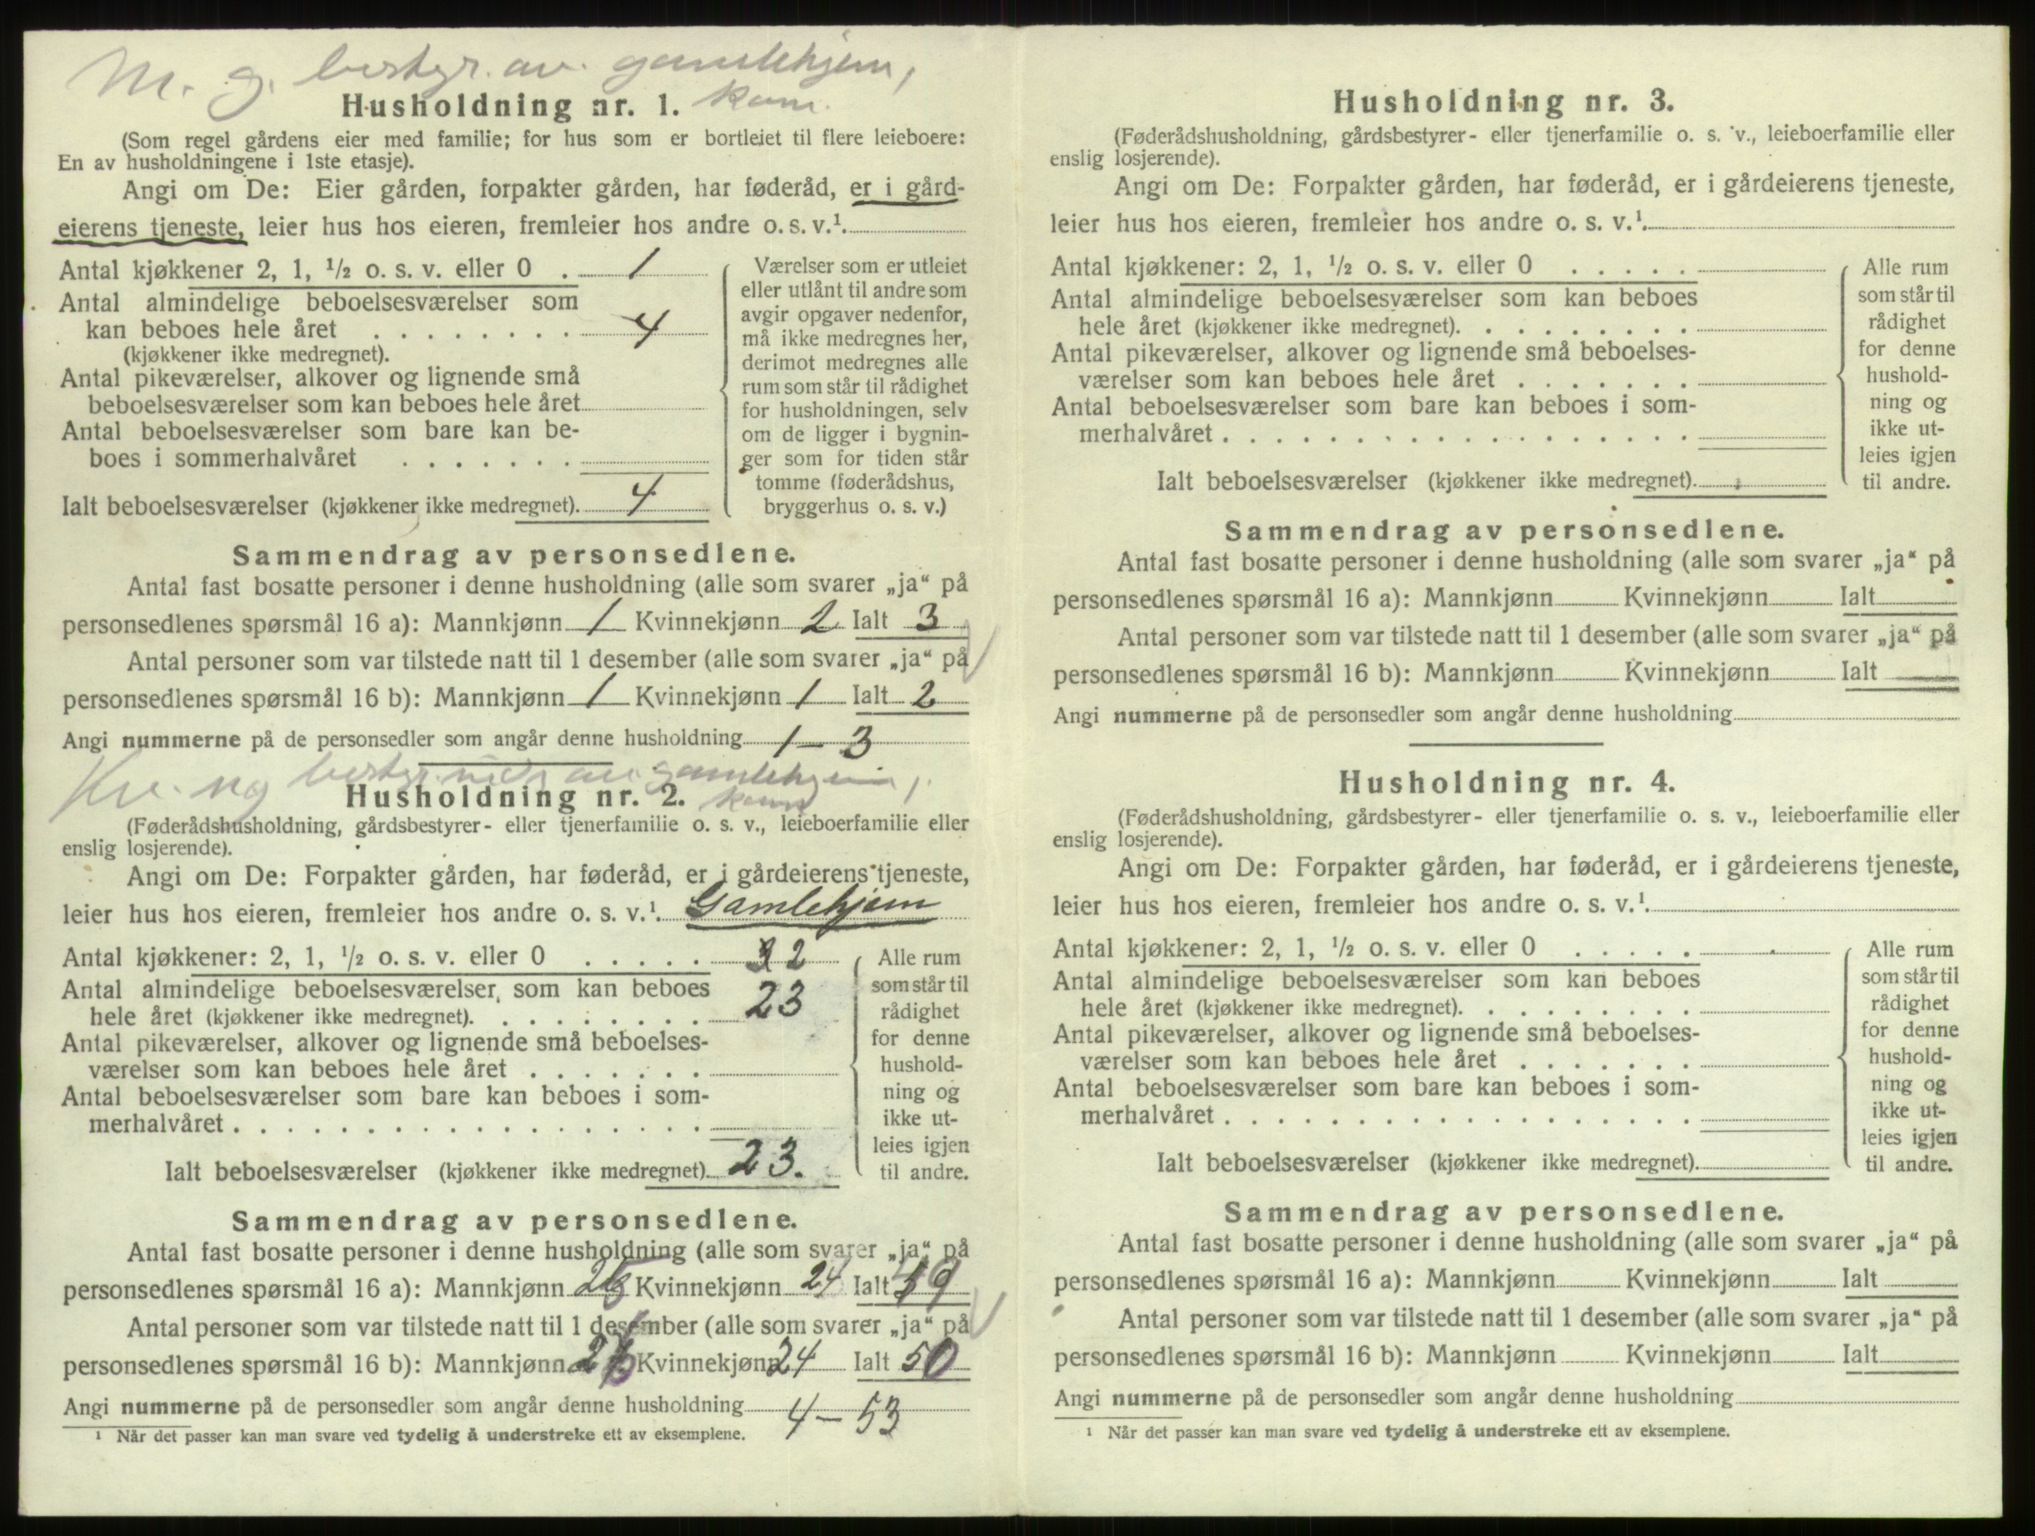 M. g. bestyr. av. gamlehjem,
Husholdning nr. 1. kom.
(Som regel gårdens eier med familie; for hus som er bortleiet til flere leieboere:
En av husholdningene i 1ste etasje).
Angi om De: Eier gården, forpakter gården, har føderåd, er i gård-
eierens tjeneste, leier hus hos eieren, fremleier hos andre o. s. v.¹.
Antal kjøkkener 2, 1, ½ o. s. v. eller 0 . 1
Antal almindelige beboelsesværelser som
kan beboes hele året . . . . . . . . 4
(kjøkkener ikke medregnet).
Antal pikeværelser, alkover og lignende små
beboelsesværelser som kan beboes hele året
Antal beboelsesværelser som bare kan be-
boes i sommerhalvåret . . . . . . .
Ialt beboelsesværelser (kjøkkener ikke medregnet). 4
Værelser som er utleiet
eller utlånt til andre som
avgir opgaver nedenfor,
må ikke medregnes her,
derimot medregnes alle
rum som står til rådighet
for husholdningen, selv
om de ligger i bygnin-
ger som for tiden står
tomme (føderådshus,
bryggerhus o. s. v.)
Sammendrag av personsedlene.
Antal fast bosatte personer i denne husholdning (alle som svarer „ja“ på
personsedlenes spørsmål 16 a): Mannkjønn 1 Kvinnekjønn 2 Ialt 3
Antal personer som var tilstede natt til 1 desember (alle som svarer „ja“ på
personsedlenes spørsmål 16 b): Mannkjønn 1 Kvinnekjønn 1 Ialt 2
Angi nummerne på de personsedler som angår denne husholdning 1 – 3
Kv. ng bestyr. av gamlehjem,
Husholdning nr. 2. kom
(Føderådshusholdning, gårdsbestyrer- eller tjenerfamilie o. s. v., leieboerfamilie eller
enslig losjerende).
Angi om De: Forpakter gården, har føderåd, er i gårdeierens tjeneste,
leier hus hos eieren, fremleier hos andre o. s. v.¹. Gamlehjem
Antal kjøkkener: 2, 1, ½ o. s. v. eller 0 . . . . . 2
Antal almindelige beboelsesværelser som kan beboes
hele året (kjøkkener ikke medregnet). . . . . . . . . 23
Antal pikeværelser, alkover og lignende små beboelses-
værelser som kan beboes hele året . . . . . . .
Antal beboelsesværelser som bare kan beboes i som-
merhalvåret . . . . . . . . . . . . . . . . . .
Ialt beboelsesværelser (kjøkkener ikke medregnet). 23.
Alle rum
som står til
rådighet
for denne
hushold-
ning og
ikke ut-
leies igjen
til andre.
Sammendrag av personsedlene.
Antal fast bosatte personer i denne husholdning (alle som svarer „ja“ på
personsedlenes spørsmål 16 a): Mannkjønn 25 Kvinnekjønn 24 Ialt 49
Antal personer som var tilstede natt til 1 desember (alle som svarer „ja“ på
personsedlenes spørsmål 16 b): Mannkjønn 26 Kvinnekjønn 24 Ialt 50
Angi nummerne på de personsedler som angår denne husholdning 4 – 53
¹ Når det passer kan man svare ved tydelig å understreke ett av eksemplene.
Husholdning nr. 3.
(Føderådshusholdning, gårdsbestyrer- eller tjenerfamilie o. s. v., leieboerfamilie eller
enslig losjerende).
Angi om De: Forpakter gården, har føderåd, er i gårdeierens tjeneste,
leier hus hos eieren, fremleier hos andre o. s. v.¹.
Antal kjøkkener: 2, 1, ½ o. s. v. eller 0 . . . . .
Antal almindelige beboelsesværelser som kan beboes
hele året (kjøkkener ikke medregnet). . . . . . . . .
Antal pikeværelser, alkover og lignende små beboelses-
værelser som kan beboes hele året . . . . . . .
Antal beboelsesværelser som bare kan beboes i som-
merhalvåret . . . . . . . . . . . . . . . . . .
Ialt beboelsesværelser (kjøkkener ikke medregnet).
Alle rum
som står til
rådighet
for denne
hushold-
ning og
ikke ut-
leies igjen
til andre.
Sammendrag av personsedlene.
Antal fast bosatte personer i denne husholdning (alle som svarer „ja“ på
personsedlenes spørsmål 16 a): Mannkjønn Kvinnekjønn Ialt
Antal personer som var tilstede natt til 1 desember (alle som svarer „ja“ på
personsedlenes spørsmål 16 b): Mannkjønn Kvinnekjønn Ialt
Angi nummerne på de personsedler som angår denne husholdning
Husholdning nr. 4.
(Føderådshusholdning, gårdsbestyrer- eller tjenerfamilie o. s. v., leieboerfamilie eller
enslig losjerende).
Angi om De: Forpakter gården, har føderåd, er i gårdeierens tjeneste,
leier hus hos eieren, fremleier hos andre o. s. v.¹.
Antal kjøkkener: 2, 1, ½ o. s. v. eller 0 . . . . .
Antal almindelige beboelsesværelser som kan beboes
hele året (kjøkkener ikke medregnet). . . . . . . . .
Antal pikeværelser, alkover og lignende små beboelses-
værelser som kan beboes hele året . . . . . . .
Antal beboelsesværelser som bare kan beboes i som-
merhalvåret . . . . . . . . . . . . . . . . . .
Ialt beboelsesværelser (kjøkkener ikke medregnet).
Alle rum
som står til
rådighet
for denne
hushold-
ning og
ikke ut-
leies igjen
til andre.
Sammendrag av personsedlene.
Antal fast bosatte personer i denne husholdning (alle som svarer „ja“ på
personsedlenes spørsmål 16 a): Mannkjønn Kvinnekjønn Ialt
Antal personer som var tilstede natt til 1 desember (alle som svarer „ja“ på
personsedlenes spørsmål 16 b): Mannkjønn Kvinnekjønn Ialt
Angi nummerne på de personsedler som angår denne husholdning
¹ Når det passer kan man svare ved tydelig å understreke ett av eksemplene.